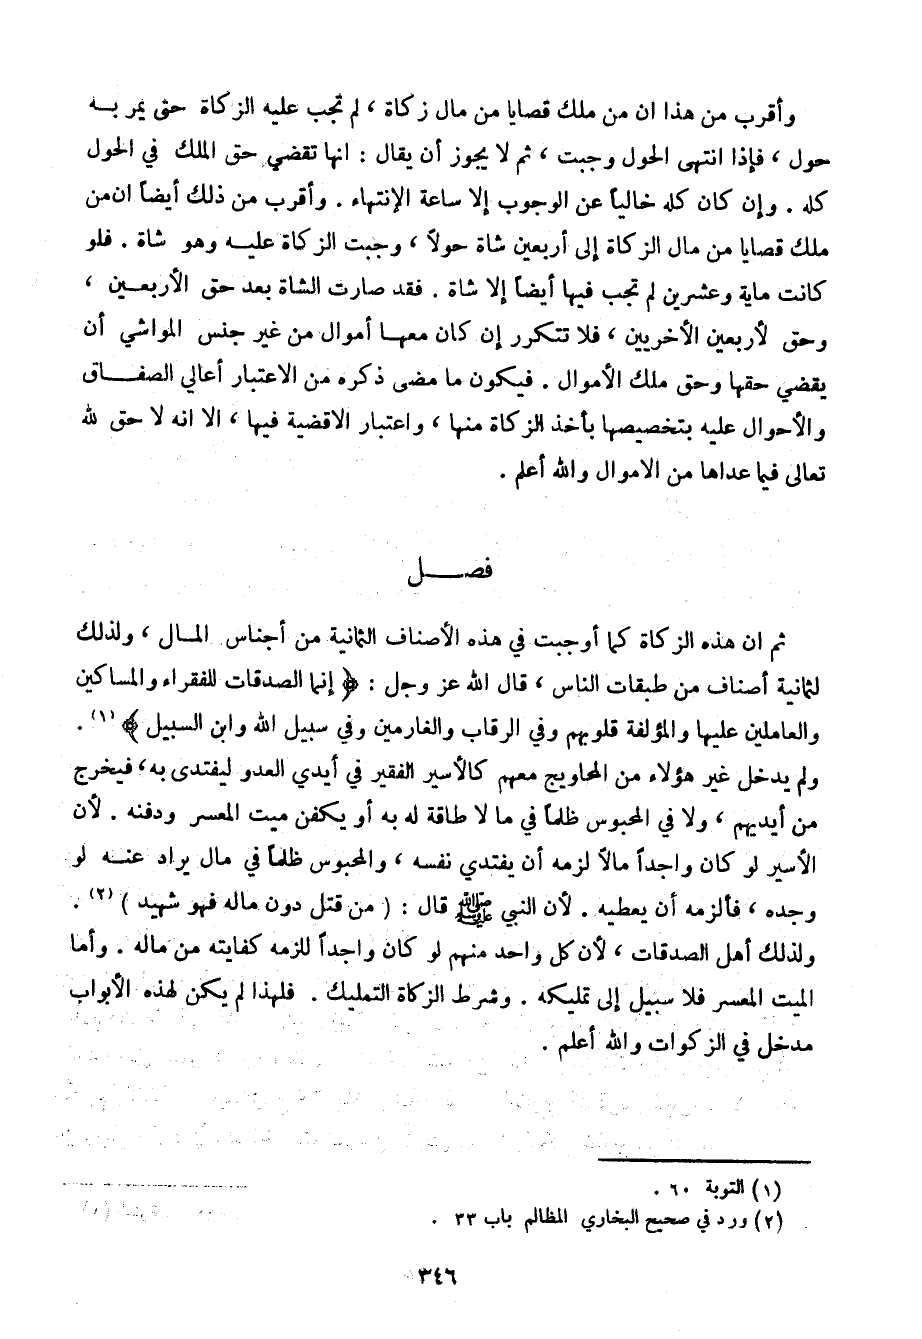 وأقرب من هذا ان من ملك قصايا من مال زكاة ، لم تجب عليه الزكاة حتى يمر بـه
حول ، فإذا انتهى الحول وجبت ، ثم لا يجوز أن يقال : انها تقضي حق الملك في الحول
كله . وإن كان كله خالياً عن الوجوب إلا ساعة الإنتهاء . وأقرب من ذلك أيضاً ان من
ملك قصايا من مال الزكاة إلى أربعين شاة حولاً ، وجبت الزكاة عليه وهو شاة . فلو
كانت ماية وعشرين لم تجب فيها أيضاً إلا شاة . فقد صارت الشاة بعد حق الأربعين ،
وحق لأربعين الأخريين ، فلا تتكرر إن كان معها أموال من غير جنس المواشي أن
يقضي حقها وحق ملك الأموال . فيكون ما مضى ذكره من الاعتبار أعالي الصفاق
والأحوال عليه بتخصيصها بأخذ الزكاة منها ، واعتبار الاقضية فيها ، الا انه لا حق لله
تعالى فيما عداها من الاموال والله أعلم .
فصل
ثم ان هذه الزكاة كما أوجبت في هذه الأصناف الثمانية من أجناس المال ، ولذلك
لثمانية أصناف من طبقات الناس ، قال الله عز وجل : ﴿ إنما الصدقات للفقراء والمساكين
والعاملين عليها والمؤلفة قلوبهم وفي الرقاب والغارمين وفي سبيل الله وابن السبيل ﴾ (١) .
ولم يدخل غير هؤلاء من المحاويج معهم كالأسير الفقير في أيدي العدو ليفتدى به ، فيخرج
من أيديهم ، ولا في المحبوس ظلماً في ما لا طاقة له به أو يكفن ميت المعسر ودفنه . لأن
الأسير لو كان واجداً مالاً لزمه أن يفتدي نفسه ، والمحبوس ظلماً في مال يراد عنه لو
وجده ، فألزمه أن يعطيه . لأن النبي ﷺ قال : ( من قتل دون ماله فهو شهيد ) (٢) .
ولذلك أهل الصدقات ، لأن كل واحد منهم لو كان واجداً للزمه كفايته من ماله . وأما
الميت المعسر فلا سبيل إلى تمليكه . وشرط الزكاة التمليك . فلهذا لم يكن لهذه الأبواب
مدخل في الزكوات والله أعلم .
(١) التوبة ٦٠ .
(٢) ورد في صحيح البخاري المظالم باب ٣٣ .
٣٤٦